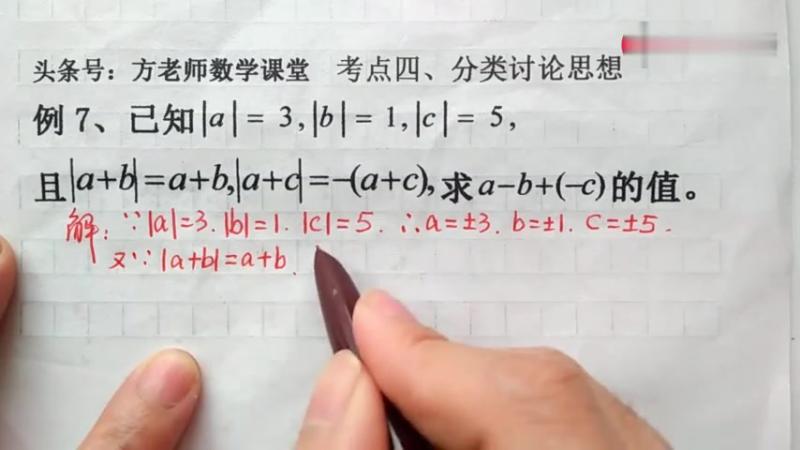 头条号：方老师数学课堂 考点四、分类讨论思想
例7、已知|a|= 3,|b|= 1,|c|= 5,
且|a+b|=a+b,|a+c|=-(a+c),求a-b+(-c)的值。
解：∵|a|=3.|b|=1.|c|=5.∴a=±3.b=±1.c=±5.
又∵|a+b|=a+b.